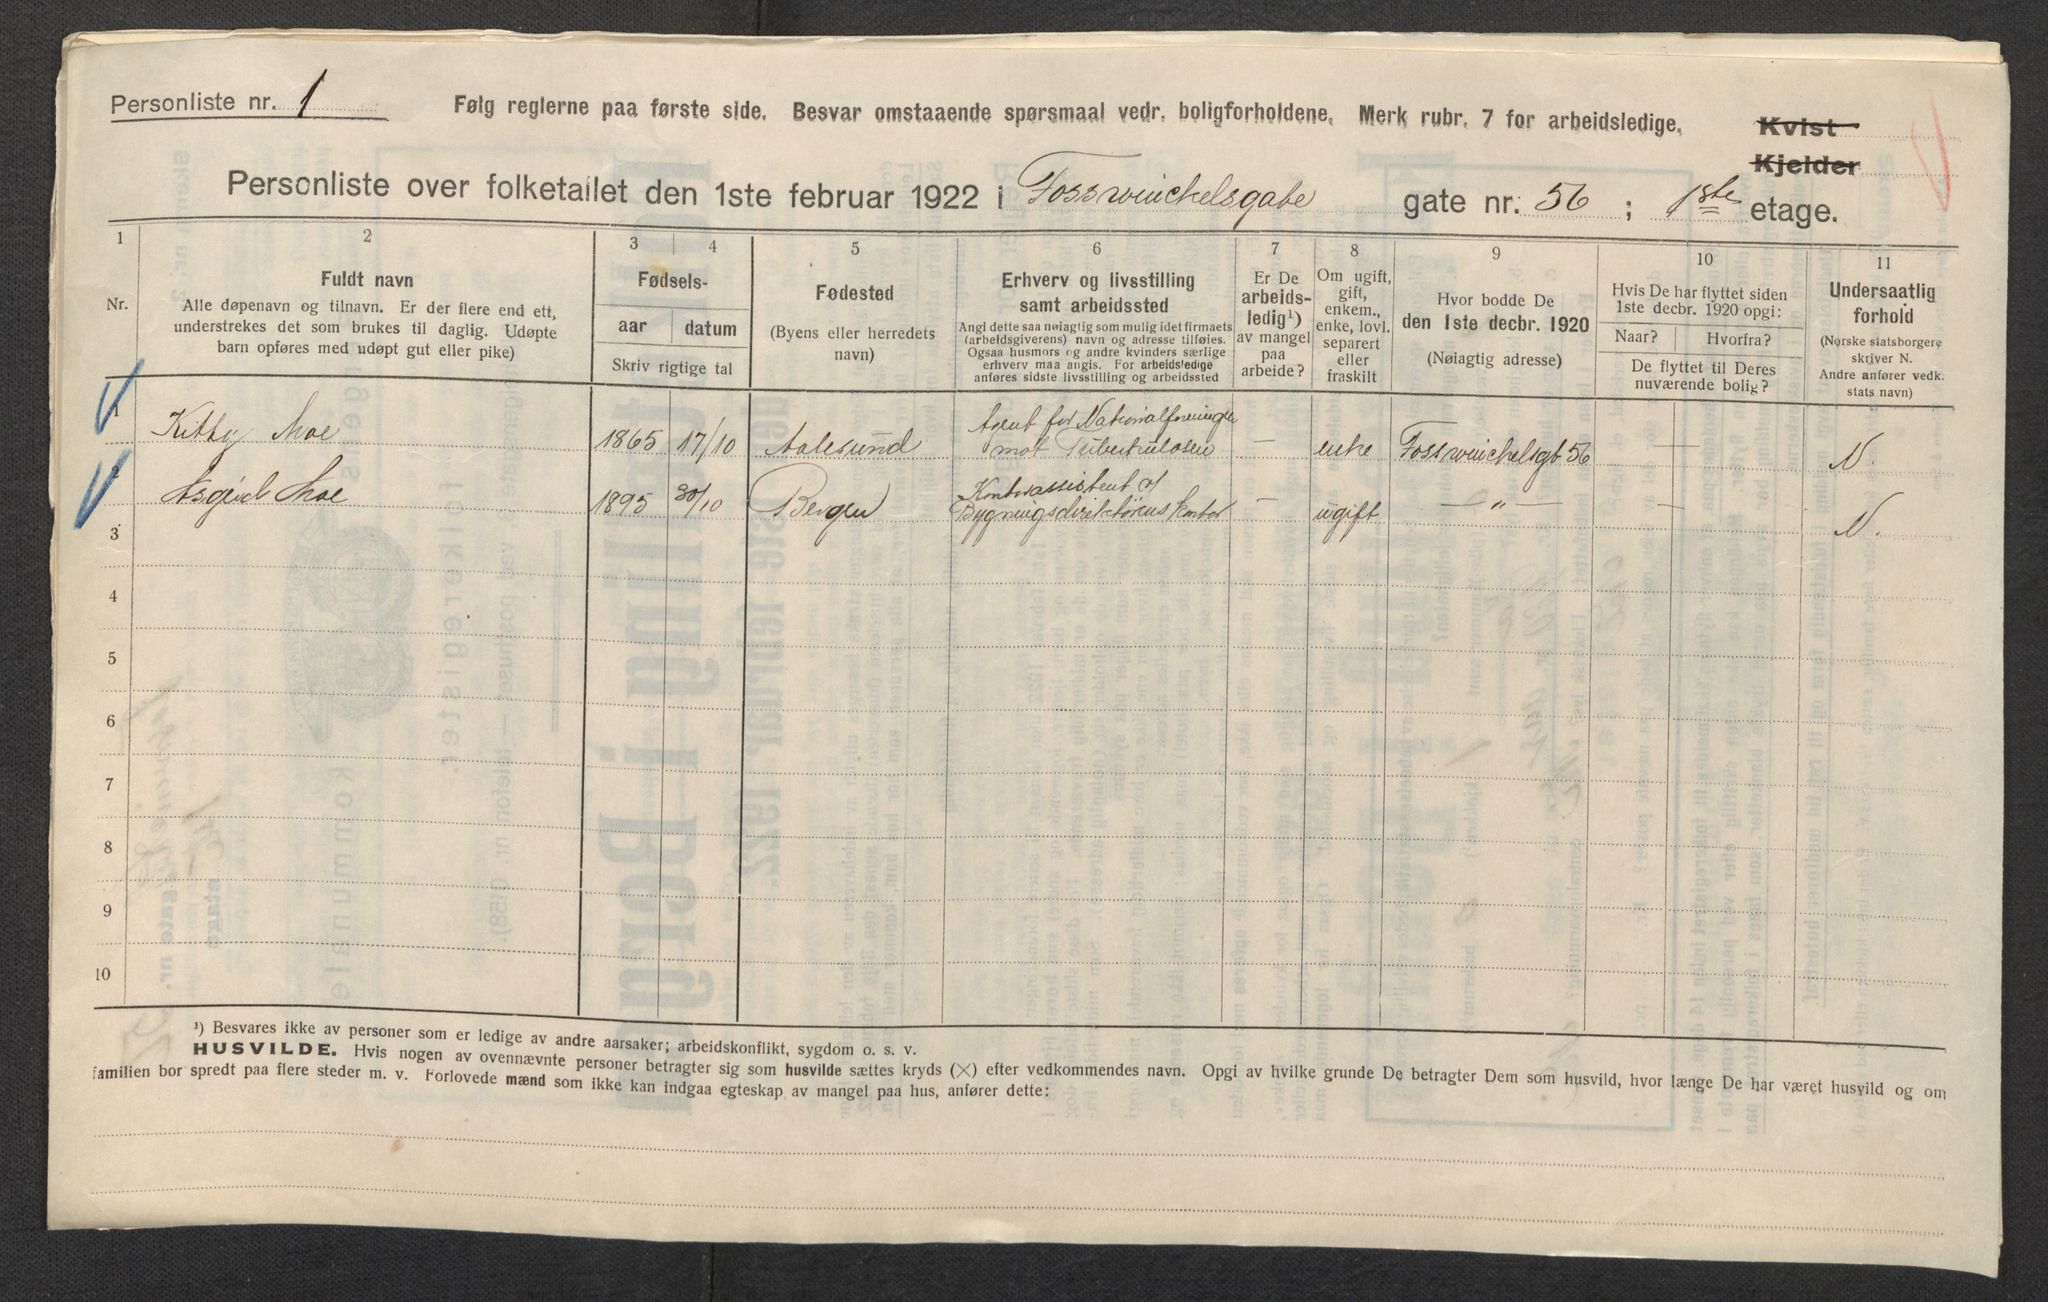 Personliste nr. 1
Følg reglerne paa første side. Besvar omstaaende spørsmaal vedr. boligforholdene. Merk rubr. 7 for arbeidsledige.
Kvist
Kjelder
Personliste over folketallet den 1ste februar 1922 i Fosswinckelsgate gate nr. 56 ; 1ste etage.
1 2 3 4 5 6 7 8 9 10 11
Nr.
Fuldt navn
Alle døpenavn og tilnavn. Er der flere end ett,
understrekes det som brukes til daglig. Udøpte
barn opføres med udøpt gut eller pike)
Fødsels-
aar datum
Skriv rigtige tal
Fødested
(Byens eller herredets
navn)
Erhverv og livsstilling
samt arbeidssted
Angi dette saa nøiaglig som mulig idet firmaets
(arbeidsgiverens) navn og adresse tilføies.
Ogsaa husmors og andre kvinders særlige
erhverv maa angis. For arbeidsledige
anføres sidste livsstilling og arbeidssted
Er De
arbeids-
ledig¹)
av mangel
paa
arbeide?
Om ugift,
gift,
enkem.,
enke, lovl.
separert
eller
fraskilt
Hvor bodde De
den 1ste decbr. 1920
(Nøiagtig adresse)
Hvis De har flyttet siden
1ste decbr. 1920 opgi:
Naar? Hvorfra?
De flyttet til Deres
nuværende bolig?
Undersaatlig
forhold
(Norske statsborgere
skriver N.
Andre anfører vedk.
stats navn)
1 Kitty Moe 1865 17/10 Aalesund Agent for Nationalforeningen
mot Tuberkulosen — enke Fosswinckelsgt 56 — N.
2 Moe 1895 30/10 Bergen Kontorassistent v/
Bygningsdirektørens kontor — ugift — „ — — N.
3
4
5
6
7
8
9
10
¹) Besvares ikke av personer som er ledige av andre aarsaker; arbeidskonflikt, sygdom o. s. v.
HUSVILDE. Hvis nogen av ovennævnte personer betragter sig som husvilde sættes kryds (×) efter vedkommendes navn. Opgi av hvilke grunde De betragter Dem som husvild, hvor længe De har været husvild og om
familien bor spredt paa flere steder m. v. Forlovede mænd som ikke kan indgaa egteskap av mangel paa hus, anfører dette: